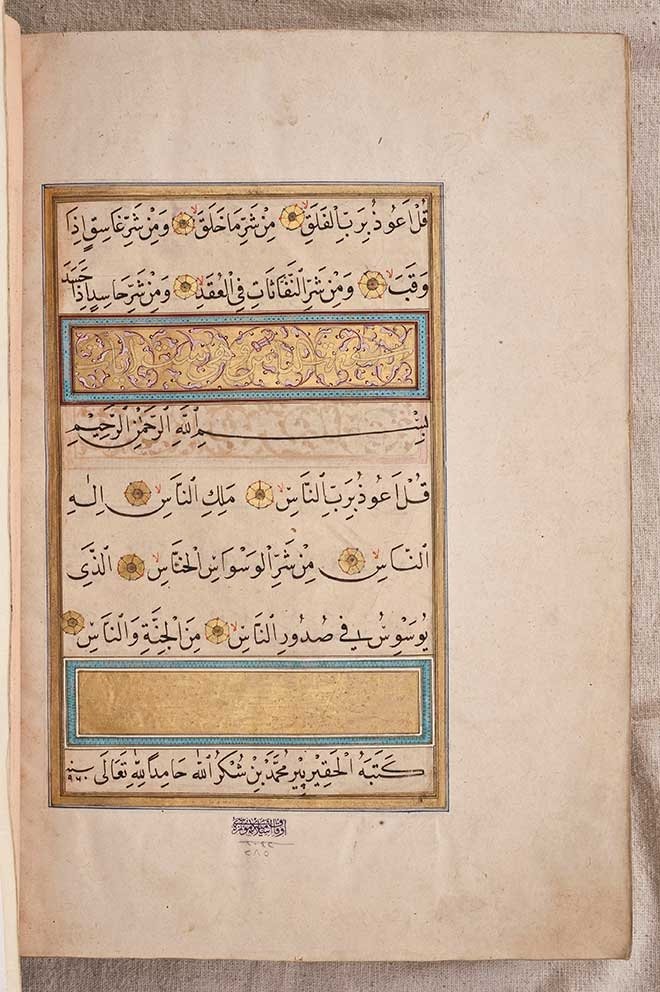 قُلْ اَعُوذُ بِرَبِّ الْفَلَقِ مِنْ شَرِّ مَا خَلَقَ وَمِنْ شَرِّ غَاسِقٍ اِذَا
وَقَبَ وَمِنْ شَرِّ النَّفَّاثَاتِ فِي الْعُقَدِ وَمِنْ شَرِّ حَاسِدٍ اِذَا حَسَدَ
بِسْمِ اللّٰهِ الرَّحْمٰنِ الرَّحِيمِ
قُلْ اَعُوذُ بِرَبِّ النَّاسِ مَلِكِ النَّاسِ اِلٰهِ
النَّاسِ مِنْ شَرِّ الْوَسْوَاسِ الْخَنَّاسِ الَّذِي
يُوَسْوِسُ فِي صُدُورِ النَّاسِ مِنَ الْجِنَّةِ وَالنَّاسِ
كَتَبَهُ الْحَقِير پِير مُحَمَّد بْنِ شُكْرُ اللّٰه حَامِداً لِلّٰهِ تَعَالَى سنه ٩٦٠